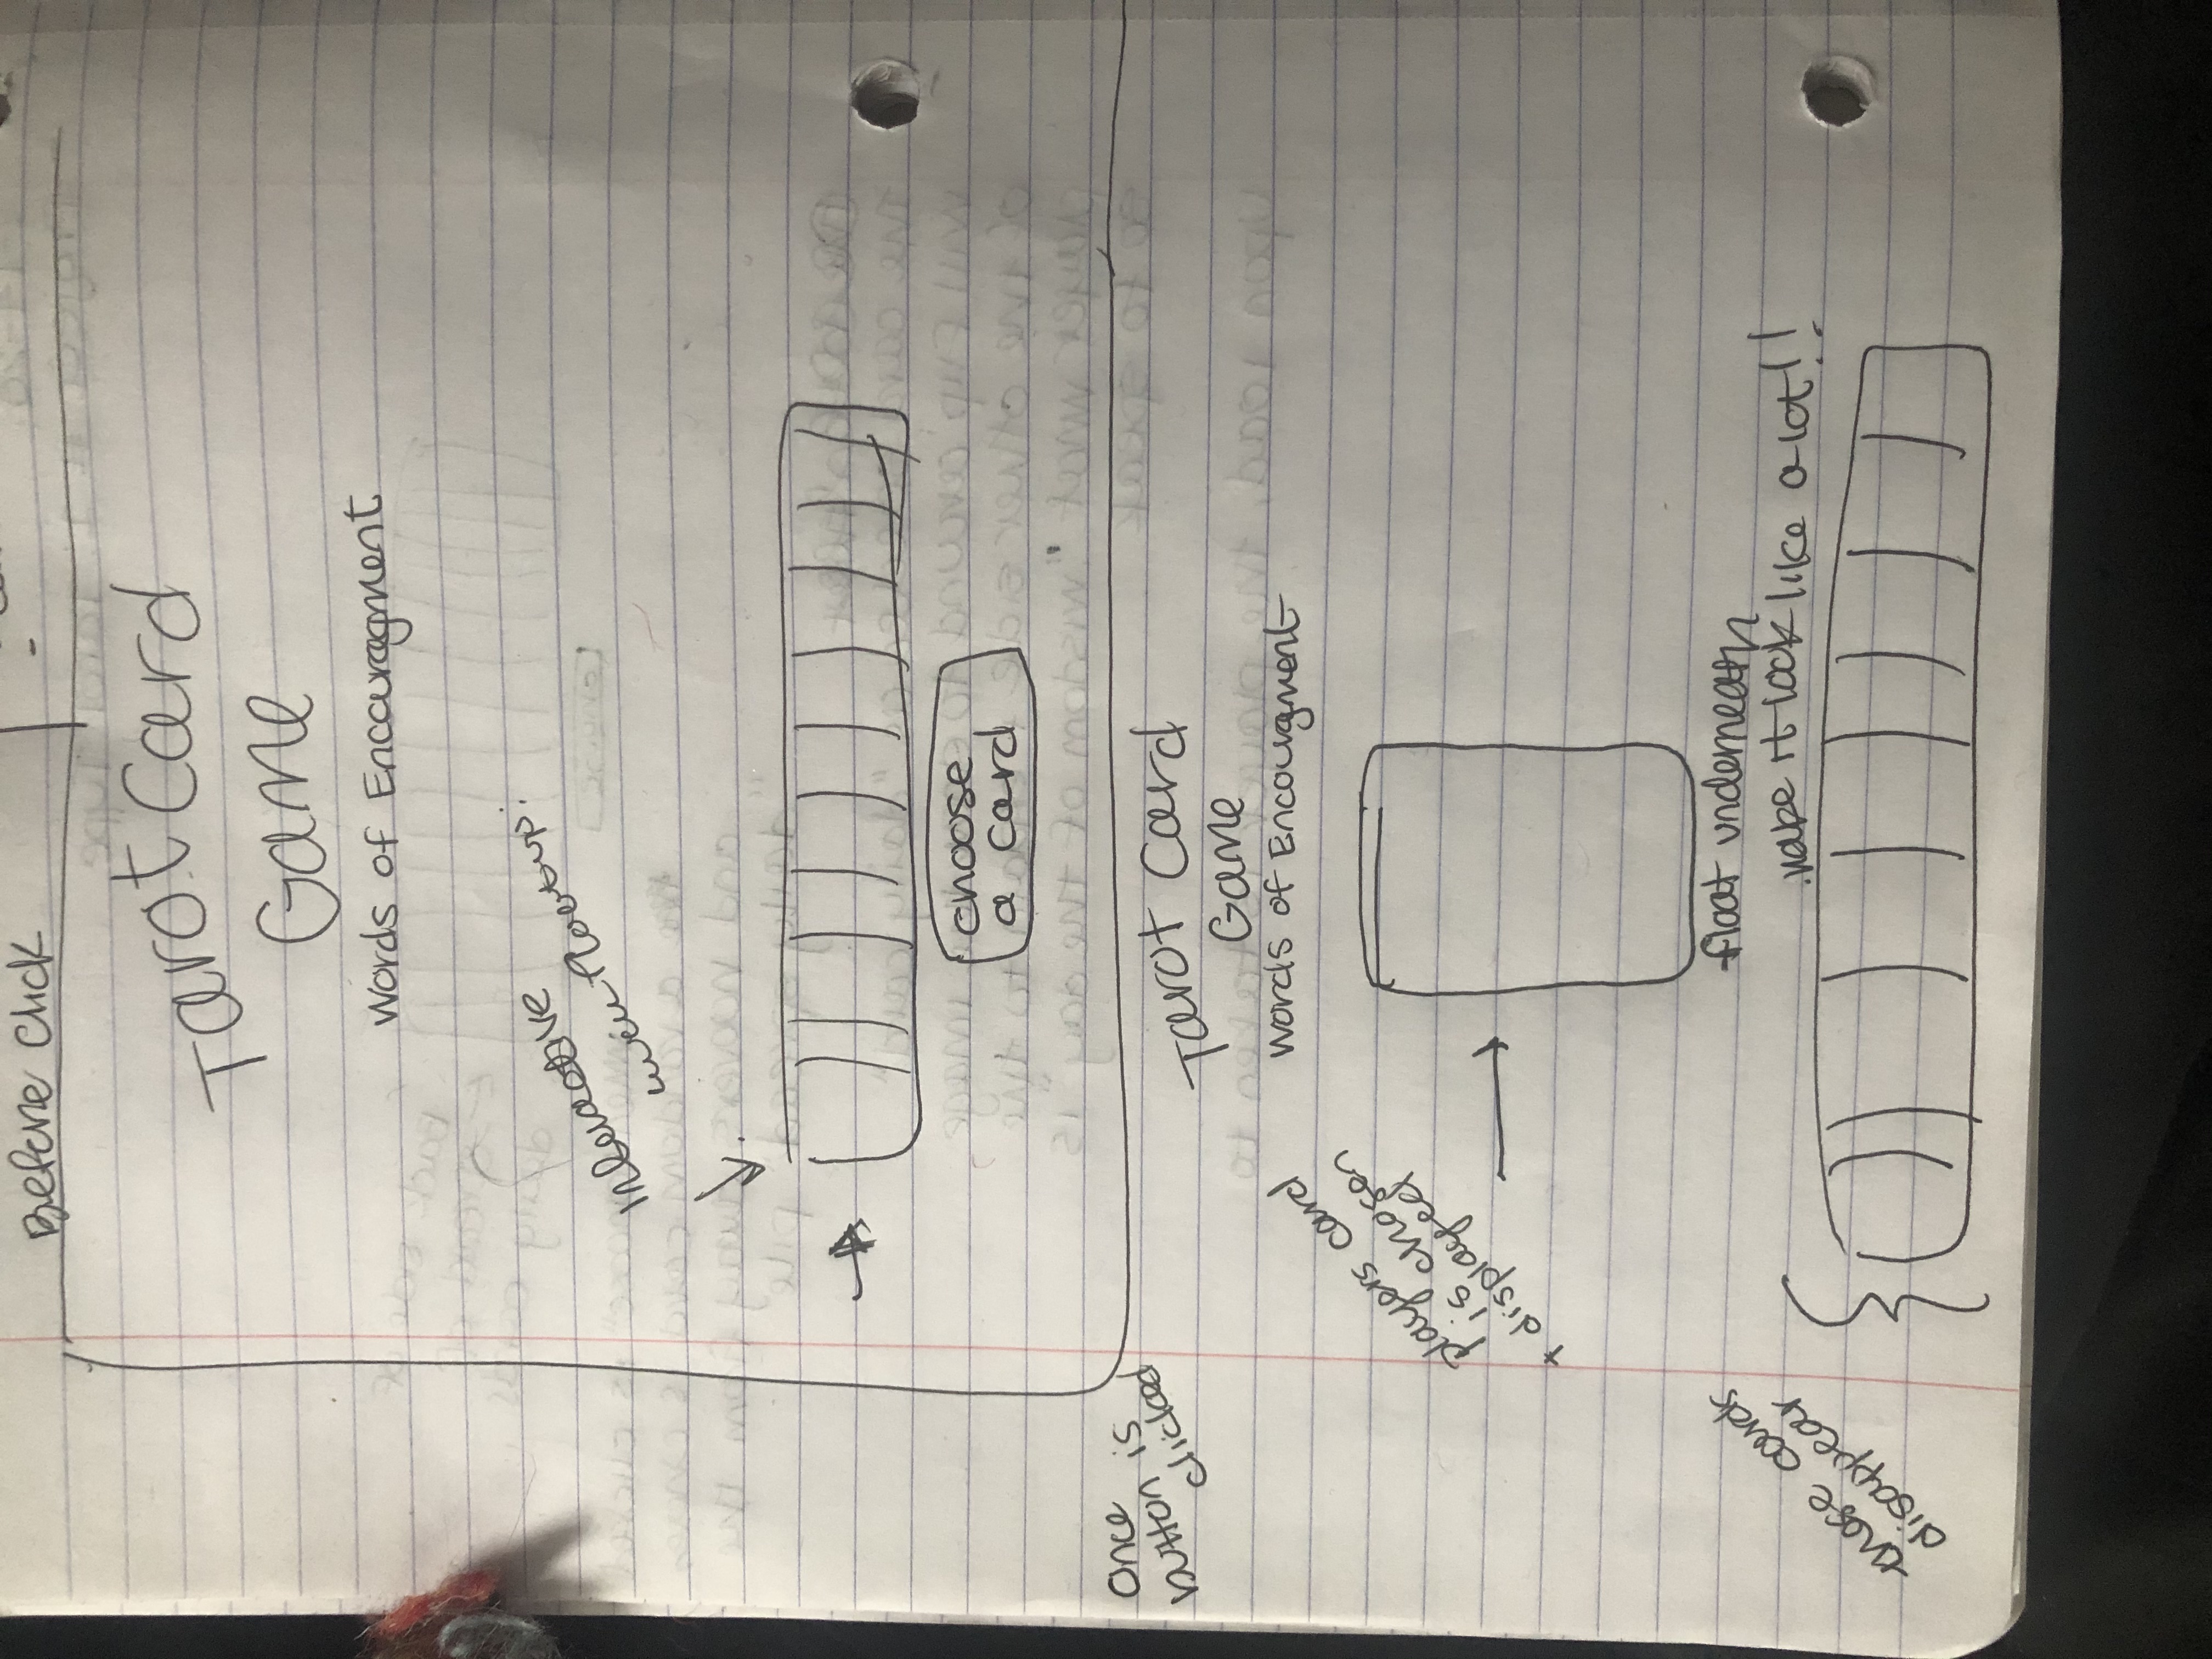 Before Click
-
Tarot Card
Game
Words of Encouragment
Interactive
will float up.
choose
a card
Once
button is
clicked
Tarot Card
Game
Words of Encourgment
players card
is chosen
+ displayed
float underneath
make it look like a lot!!
these cards
disappear